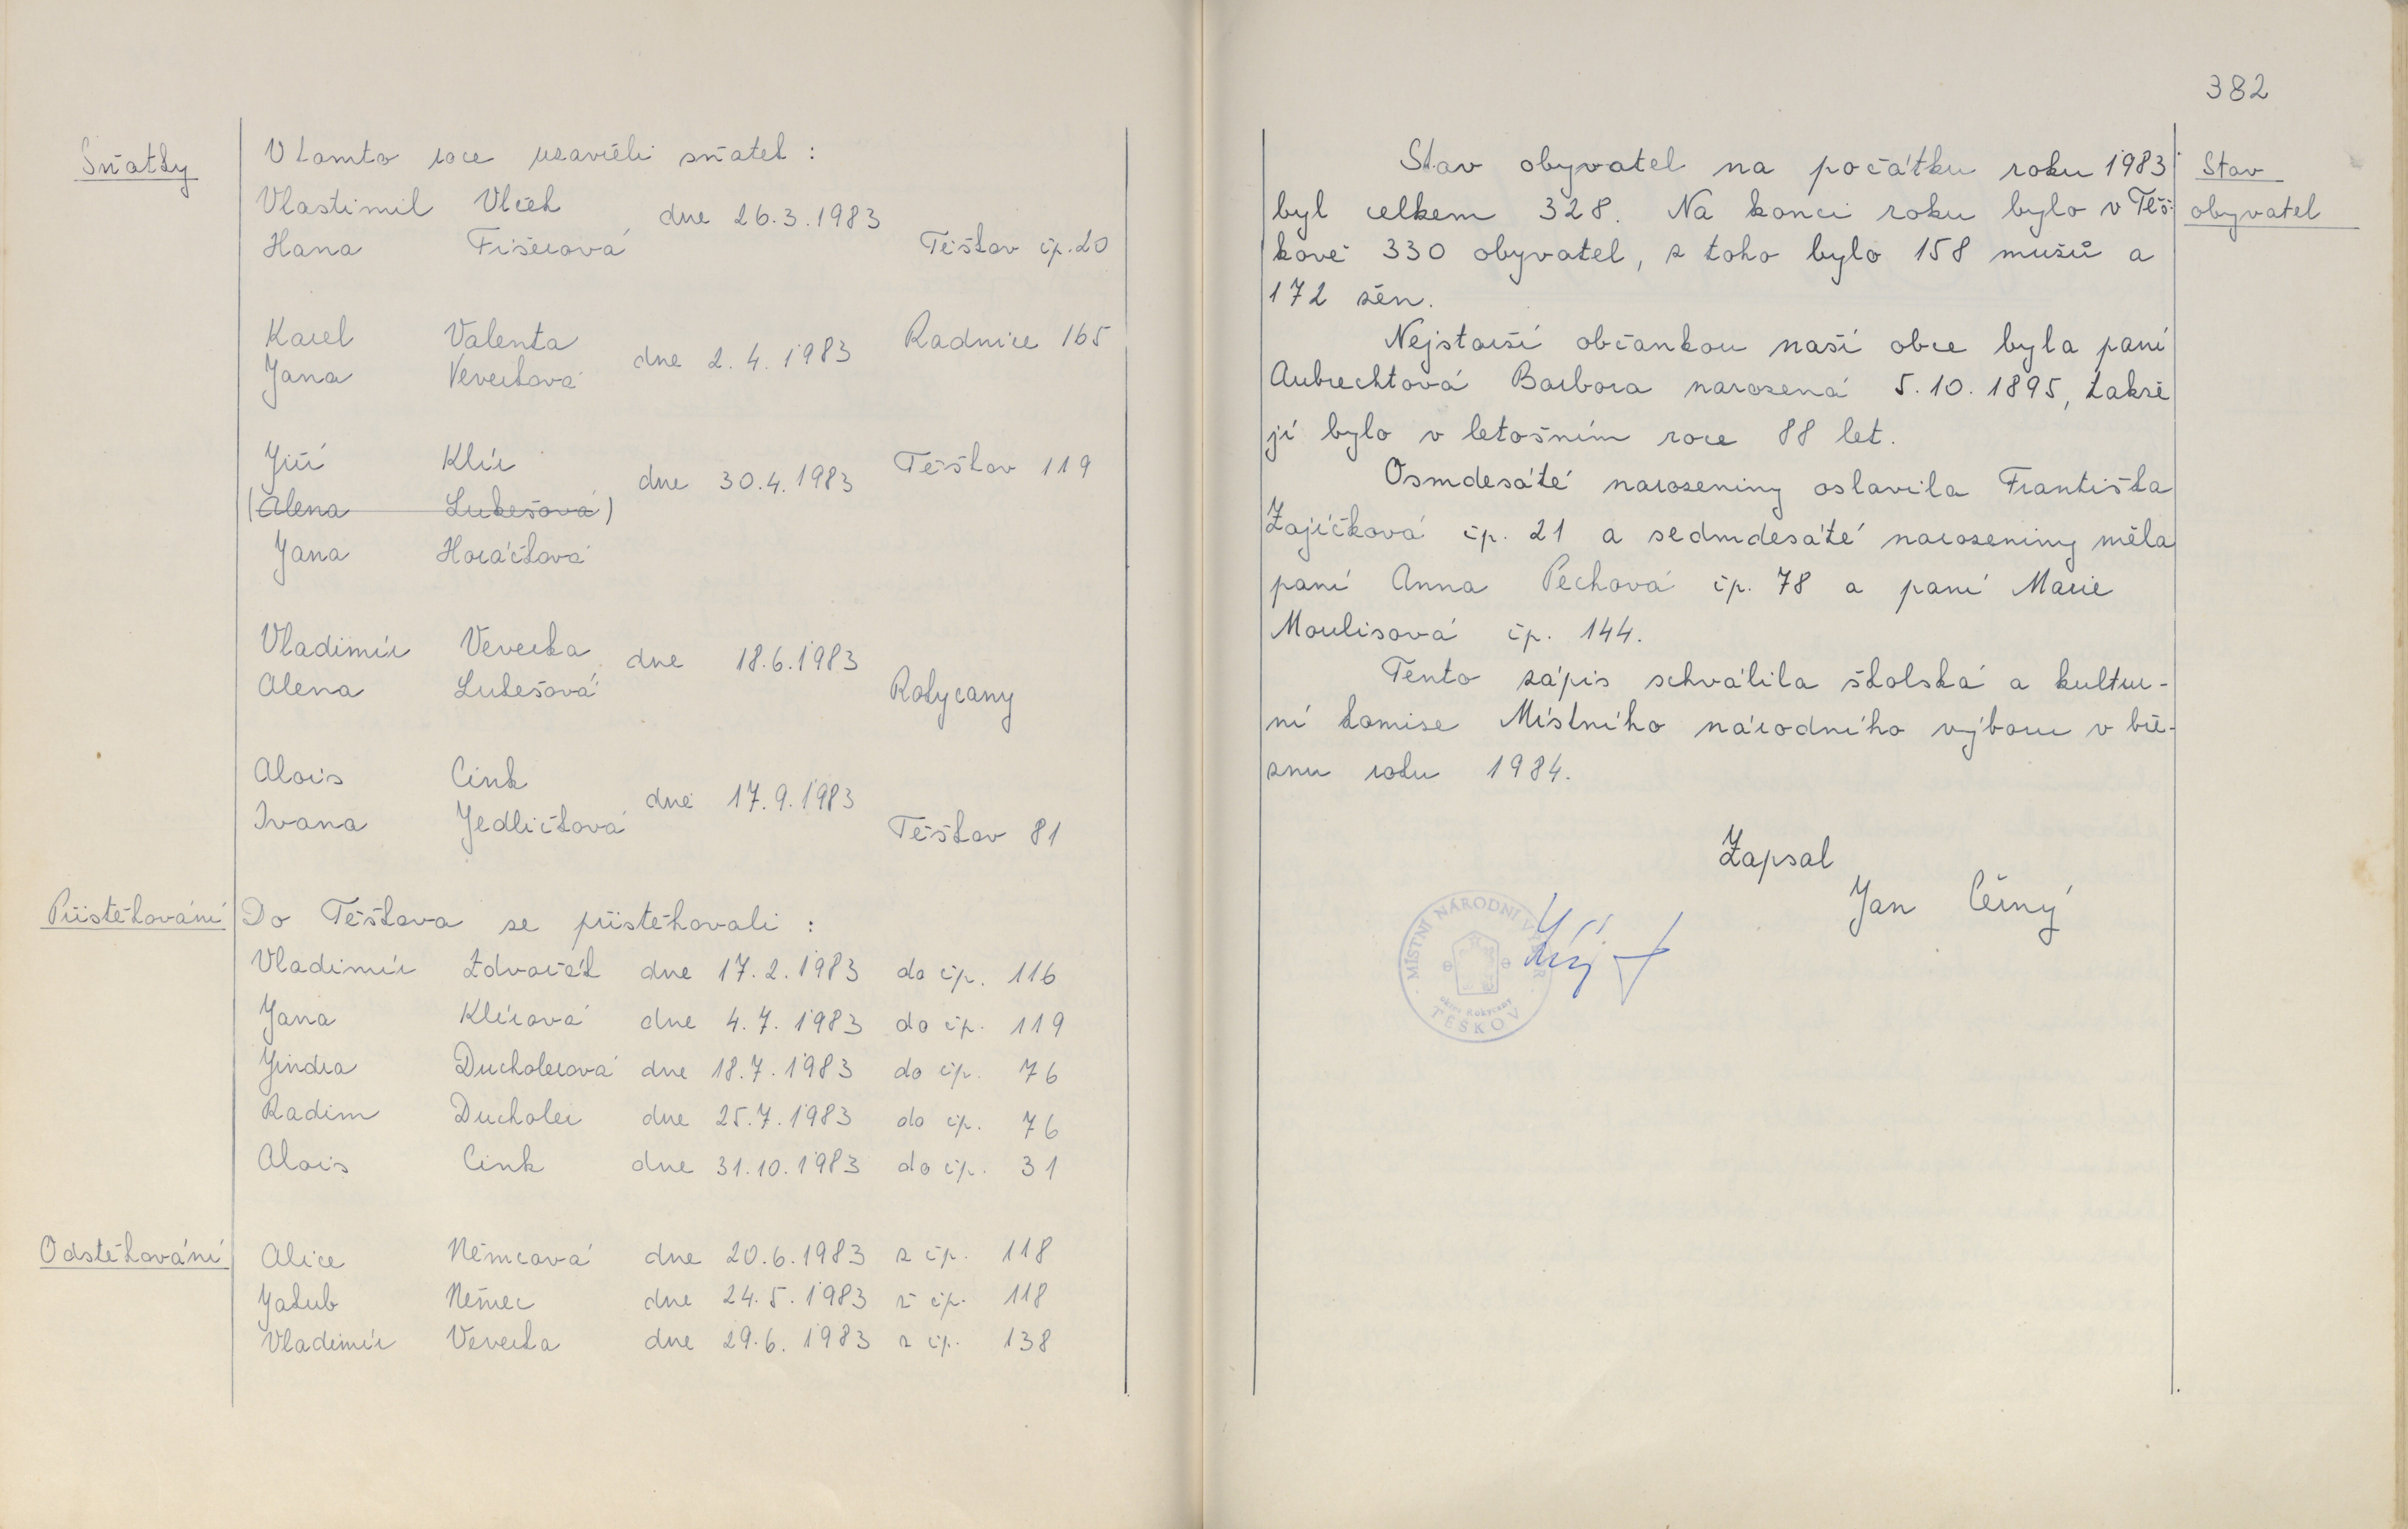 Sňatky
V tomto roce uzavřeli sňatek :
Vlastimil Vlček dne 26.3.1983
Hana Fišerová Těškov čp. 20
Karel Valenta dne 2.4.1983 Radnice 165
Jana Veverková
Jiří Klír dne 30.4.1983 Těškov 119
(Alena Lukešová)
Jana Horáčková
Vladimír Veverka dne 18.6.1983
Alena Lukešová Rokycany
Alois Cink dne 17.9.1983
Ivana Jedličková Těškov 81
Přistěhování
Do Těškova se přistěhovali :
Vladimír Zdvořák dne 17.2.1983 do čp. 116
Jana Klírová dne 4.7.1983 do čp. 119
Jindra Ducholerová dne 18.7.1983 do čp. 76
Radim Ducholer dne 25.7.1983 do čp. 76
Alois Cink dne 31.10.1983 do čp. 31
Odstěhování
Alice Němcová dne 20.6.1983 z čp. 118
Jakub Němec dne 24.5.1983 z čp. 118
Vladimír Veverka dne 29.6.1983 z čp. 138
382
Stav
obyvatel
Stav obyvatel na počátku roku 1983
byl celkem 328. Na konci roku bylo v Těš-
kově 330 obyvatel, z toho bylo 158 mužů a
172 žen.
Nejstarší občankou naší obce byla paní
Aubrechtová Barbora narozená 5.10.1895, takže
jí bylo v letošním roce 88 let.
Osmdesáté narozeniny oslavila Františka
Zajíčková čp. 21 a sedmdesáté narozeniny měla
paní Anna Pechová čp. 78 a paní Marie
Moulisová čp. 144.
Tento zápis schválila školská a kultur-
ní komise Místního národního výboru v bře-
znu roku 1984.
Zapsal
Jan Černý
MÍSTNÍ NÁRODNÍ VÝBOR
okres Rokycany
TĚŠKOV